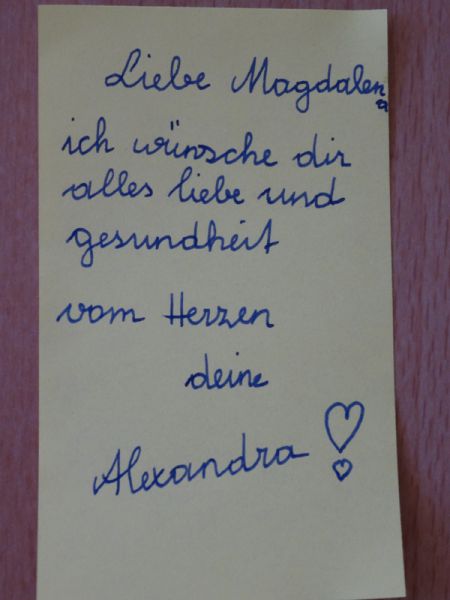 Liebe Magdalena
ich wünsche dir
alles liebe und
gesundheit
vom Herzen
deine
Alexandra